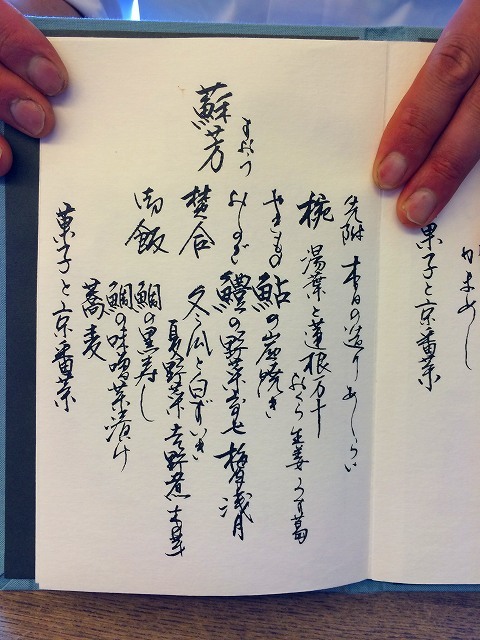 かまめし
菓子と京番茶
蘇芳
すおう
先附 本日の造り あしらい
椀 湯葉と蓮根万十
おくら 生姜 うす葛
やきもの 鮎の炭焼き
よしのど 鱧の野菜寄せ 梅浅月
焚合 冬瓜と白ずいき
夏野菜吉野煮
御飯 鯛の黒寿し
鯛の味噌茶漬け
蕎麦
菓子と京番茶